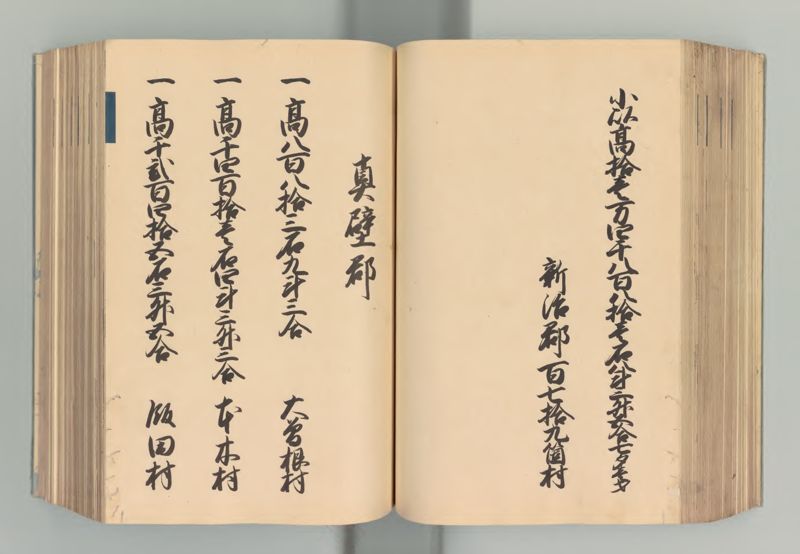 小以高拾壱万四千八百八拾壱石八斗三升五合七夕壱才
新治郡百七拾九箇村
真壁郡
一高八百八拾三石九斗三合 大曽根村
一高千四百拾壱石四斗三升三合 本木村
一高千弐百四拾五石三升五合 飯田村